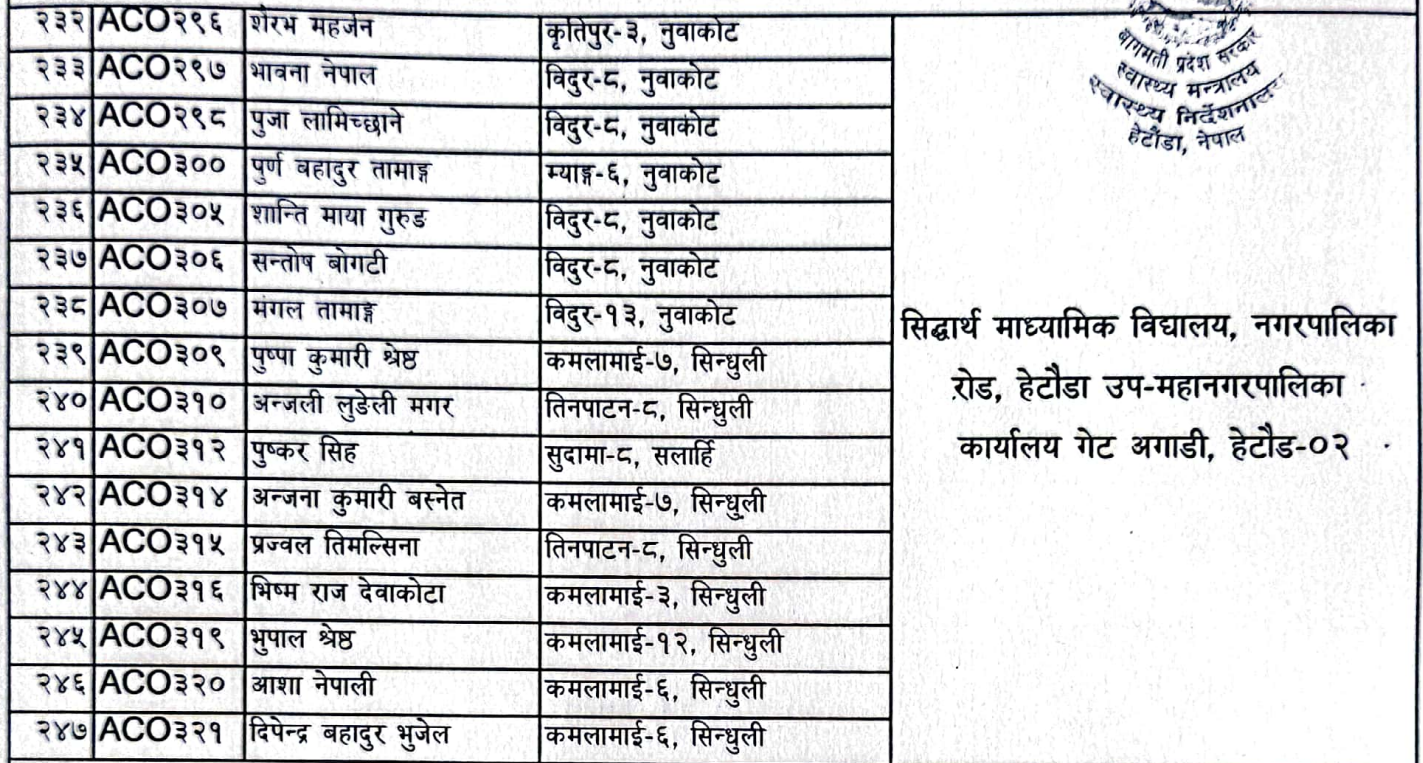 २३२ ACO२९६ शेरभ महर्जन कृतिपुर-३, नुवाकोट
२३३ ACO२९७ भावना नेपाल विदुर-८, नुवाकोट
२३४ ACO२९८ पुजा लामिच्छाने विदुर-८, नुवाकोट
२३५ ACO३०० पुर्ण बहादुर तामाङ्ग म्याङ्ग-६, नुवाकोट
२३६ ACO३०५ शान्ति माया गुरुङ विदुर-८, नुवाकोट
२३७ ACO३०६ सन्तोष बोगटी विदुर-८, नुवाकोट
२३८ ACO३०७ मंगल तामाङ्ग विदुर-१३, नुवाकोट
२३९ ACO३०९ पुष्पा कुमारी श्रेष्ठ कमलामाई-७, सिन्धुली
२४० ACO३१० अन्जली लुडेली मगर तिनपाटन-८, सिन्धुली
२४१ ACO३१२ पुष्कर सिह सुदामा-८, सलार्हि
२४२ ACO३१४ अन्जना कुमारी बस्नेत कमलामाई-७, सिन्धुली
२४३ ACO३१५ प्रज्वल तिमल्सिना तिनपाटन-८, सिन्धुली
२४४ ACO३१६ भिष्म राज देवाकोटा कमलामाई-३, सिन्धुली
२४५ ACO३१९ भुपाल श्रेष्ठ कमलामाई-१२, सिन्धुली
२४६ ACO३२० आशा नेपाली कमलामाई-६, सिन्धुली
२४७ ACO३२१ दिपेन्द्र बहादुर भुजेल कमलामाई-६, सिन्धुली
बागमती प्रदेश सरकार
स्वास्थ्य मन्त्रालय
स्वास्थ्य निर्देशनालय
हेटौंडा, नेपाल
सिद्धार्थ माध्यामिक विद्यालय, नगरपालिका
रोड, हेटौडा उप-महानगरपालिका
कार्यालय गेट अगाडी, हेटौड-०२